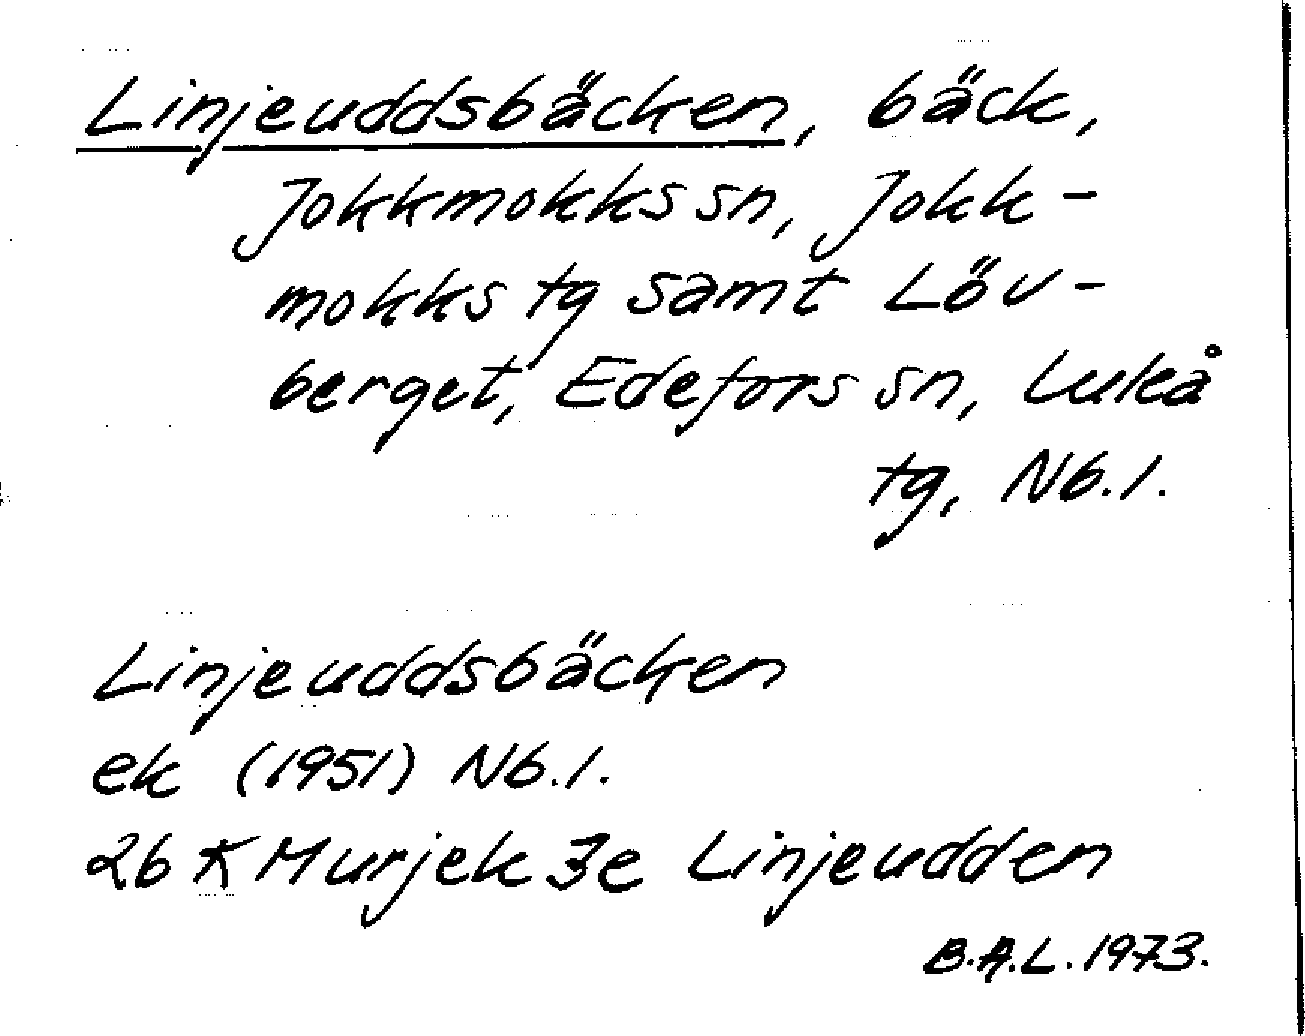 Linjeuddsbäcken, bäck,
Jokkmokks sn, Jokk-
mokks tg samt Löv-
berget, Edefors sn, Luleå
tg, Nb.l.
Linjeuddsbäcken
ek (1951) Nb.l.
26 K Murjek 3e Linjeudden
B.A.L. 1973.